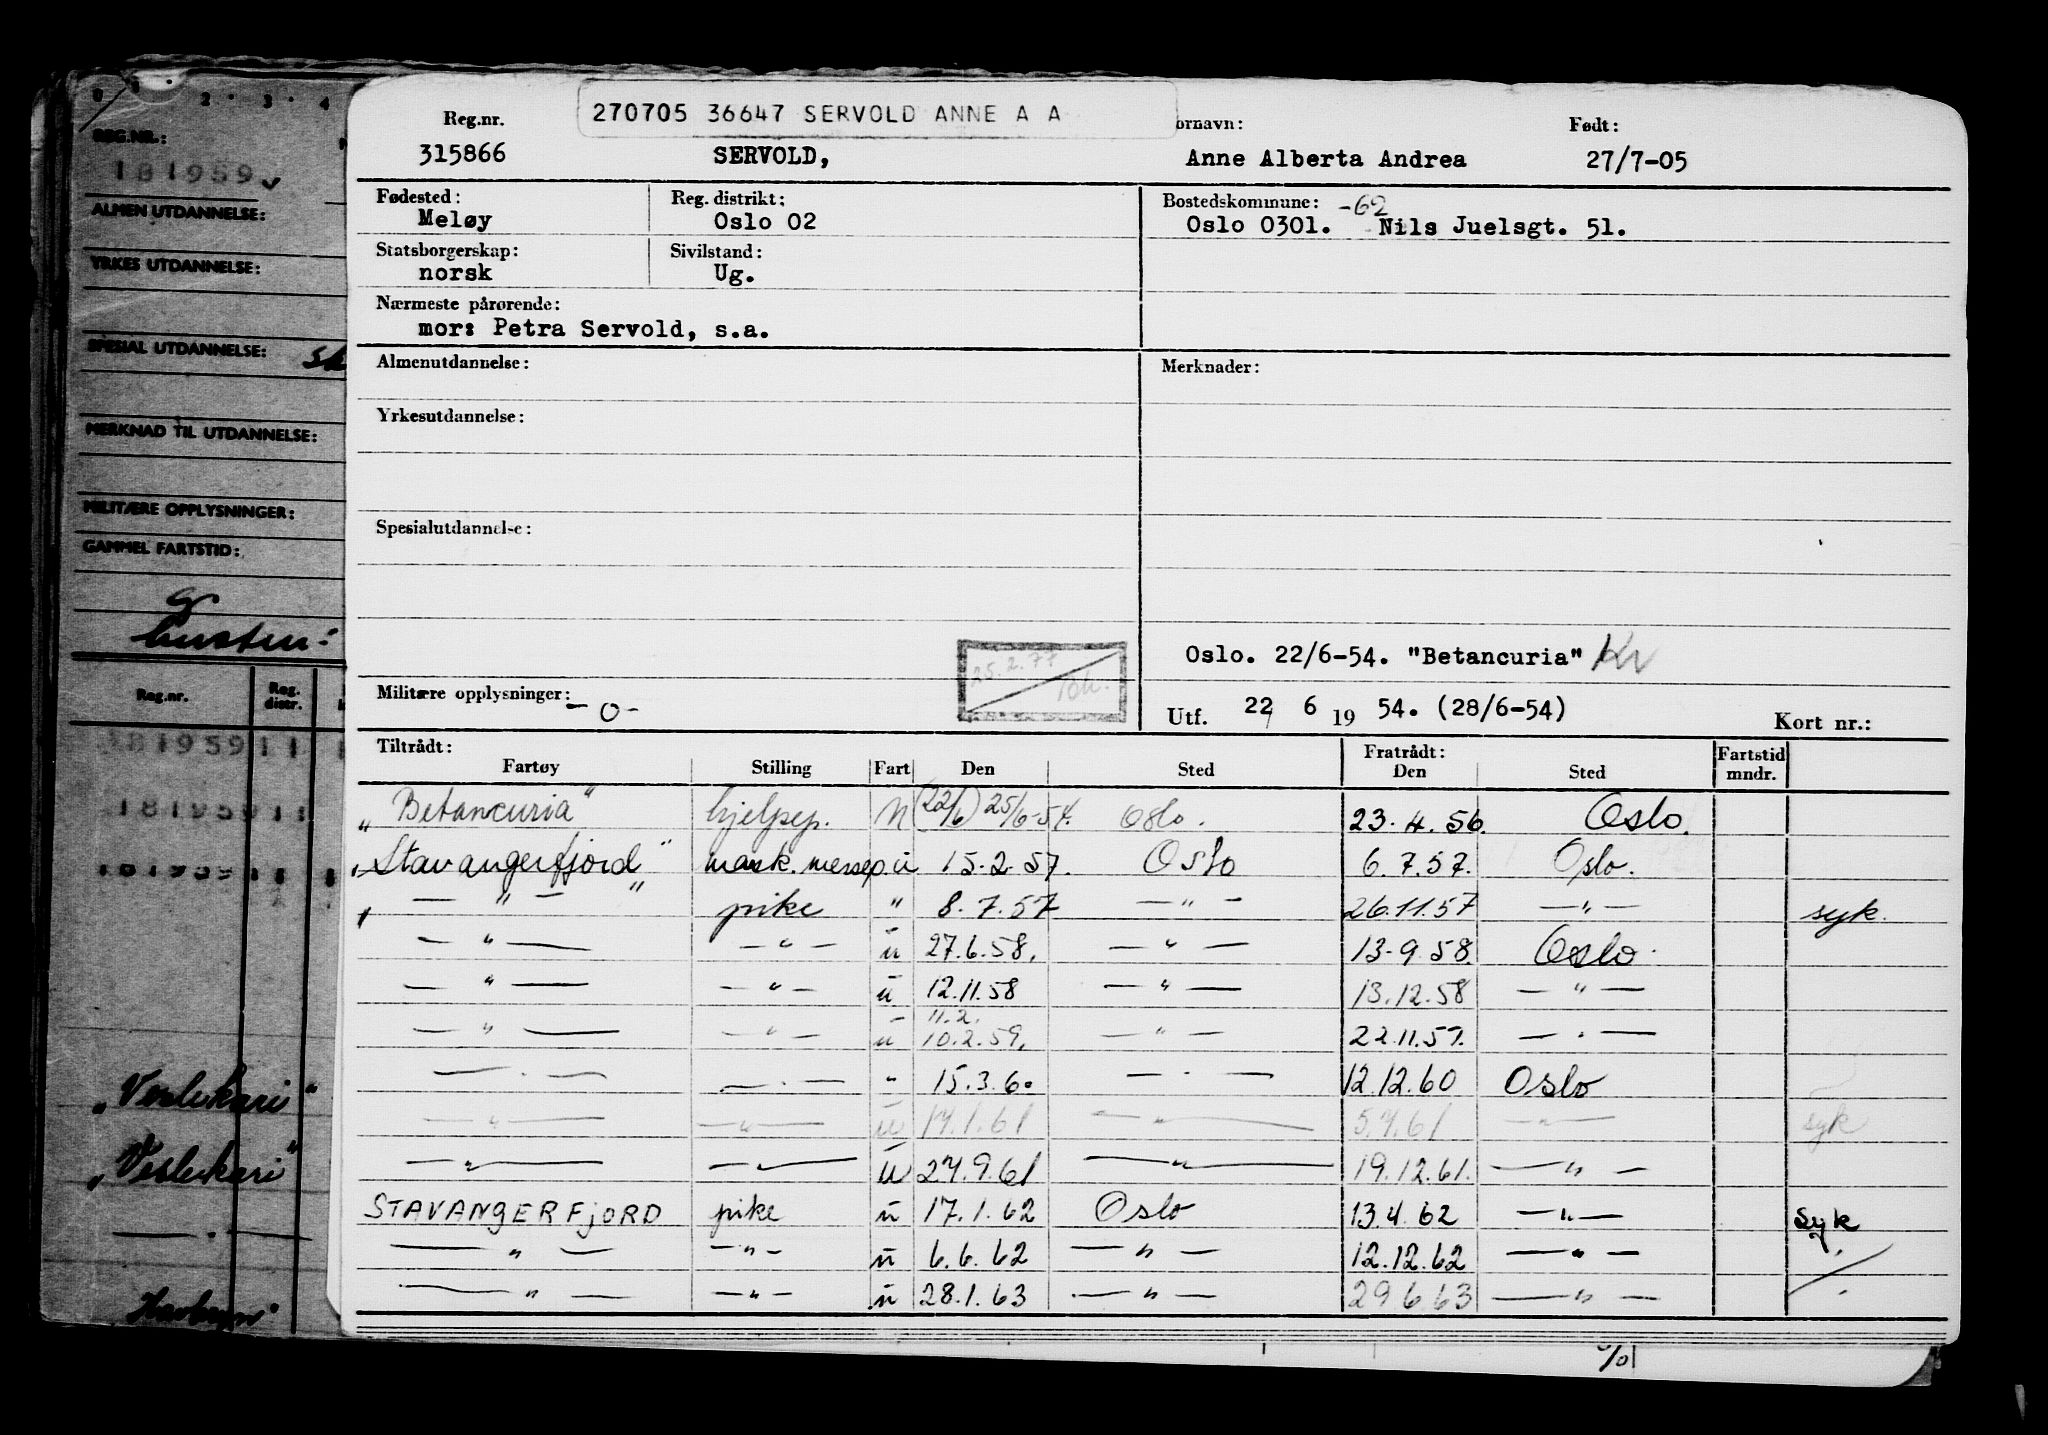 270705 36647 SERVOLD ANNE A A
Reg.nr. ornavn: Født:
315866 SERVOLD, Anne Alberta Andrea 27/7-05
Fødested: Reg. distrikt: Bostedskommune: -62
Meløy Oslo 02 Oslo 0301. Nils Juelsgt. 51.
Statsborgerskap: Sivilstand:
norsk Ug.
Nærmeste pårørende:
mor: Petra Servold, s.a.
Almenutdannelse: Merknader:
Yrkesutdannelse:
Spesialutdannelse:
25.2.77
Oslo. 22/6-54. "Betancuria"
Militære opplysninger: -0-
Utf. 22 6 19 54. (28/6-54) Kort nr.:
Tiltrådt: Fratrådt: Fartstid
Fartøy Stilling Fart Den Sted Den Sted mndr.
"Betancuria" hjelpep. N (22/6) 25/6-54. Oslo. 23.4.56. Oslo.
"Stavangerfjord" mask. messep. u 15.2.57. Oslo 6.7.57. Oslo.
— " — pike " 8.7.57 — " — 26.11.57 — " — syk.
— " — — " — u 27.6.58. — " — 13-9.58. Oslo.
— " — — " — u 12.11.58 — " — 13.12.58 — " —
11.2.
— " — — " — u 10.2.59. — " — 22.11.59. — " —
— " — — " — " 15.3.60 — " — 12.12.60 Oslo
— " — — " — u 17.1.61 — " — 5.7.61 — " — syk
— " — — " — u 27.9.61 — " — 19.12.61. — " —
STAVANGERFJORD pike u 17.1.62 Oslo 13.4.62 — " — syk
— " — — " — u 6.6.62 — " — 12.12.62 — " —
— " — — " — u 28.1.63 — " — 29.6.63 — " —
0 1 2 3 4
REG.NR.:
181959
ALMEN UTDANNELSE:
YRKES UTDANNELSE:
SPESIAL UTDANNELSE:
MERKNAD TIL UTDANNELSE:
MILITÆRE OPPLYSNINGER:
GAMMEL FARTSTID:
Reg.nr. Reg. distr.
181959 11
181959 11
181959 11
"Veslekari"
"Veslekari"
— " —